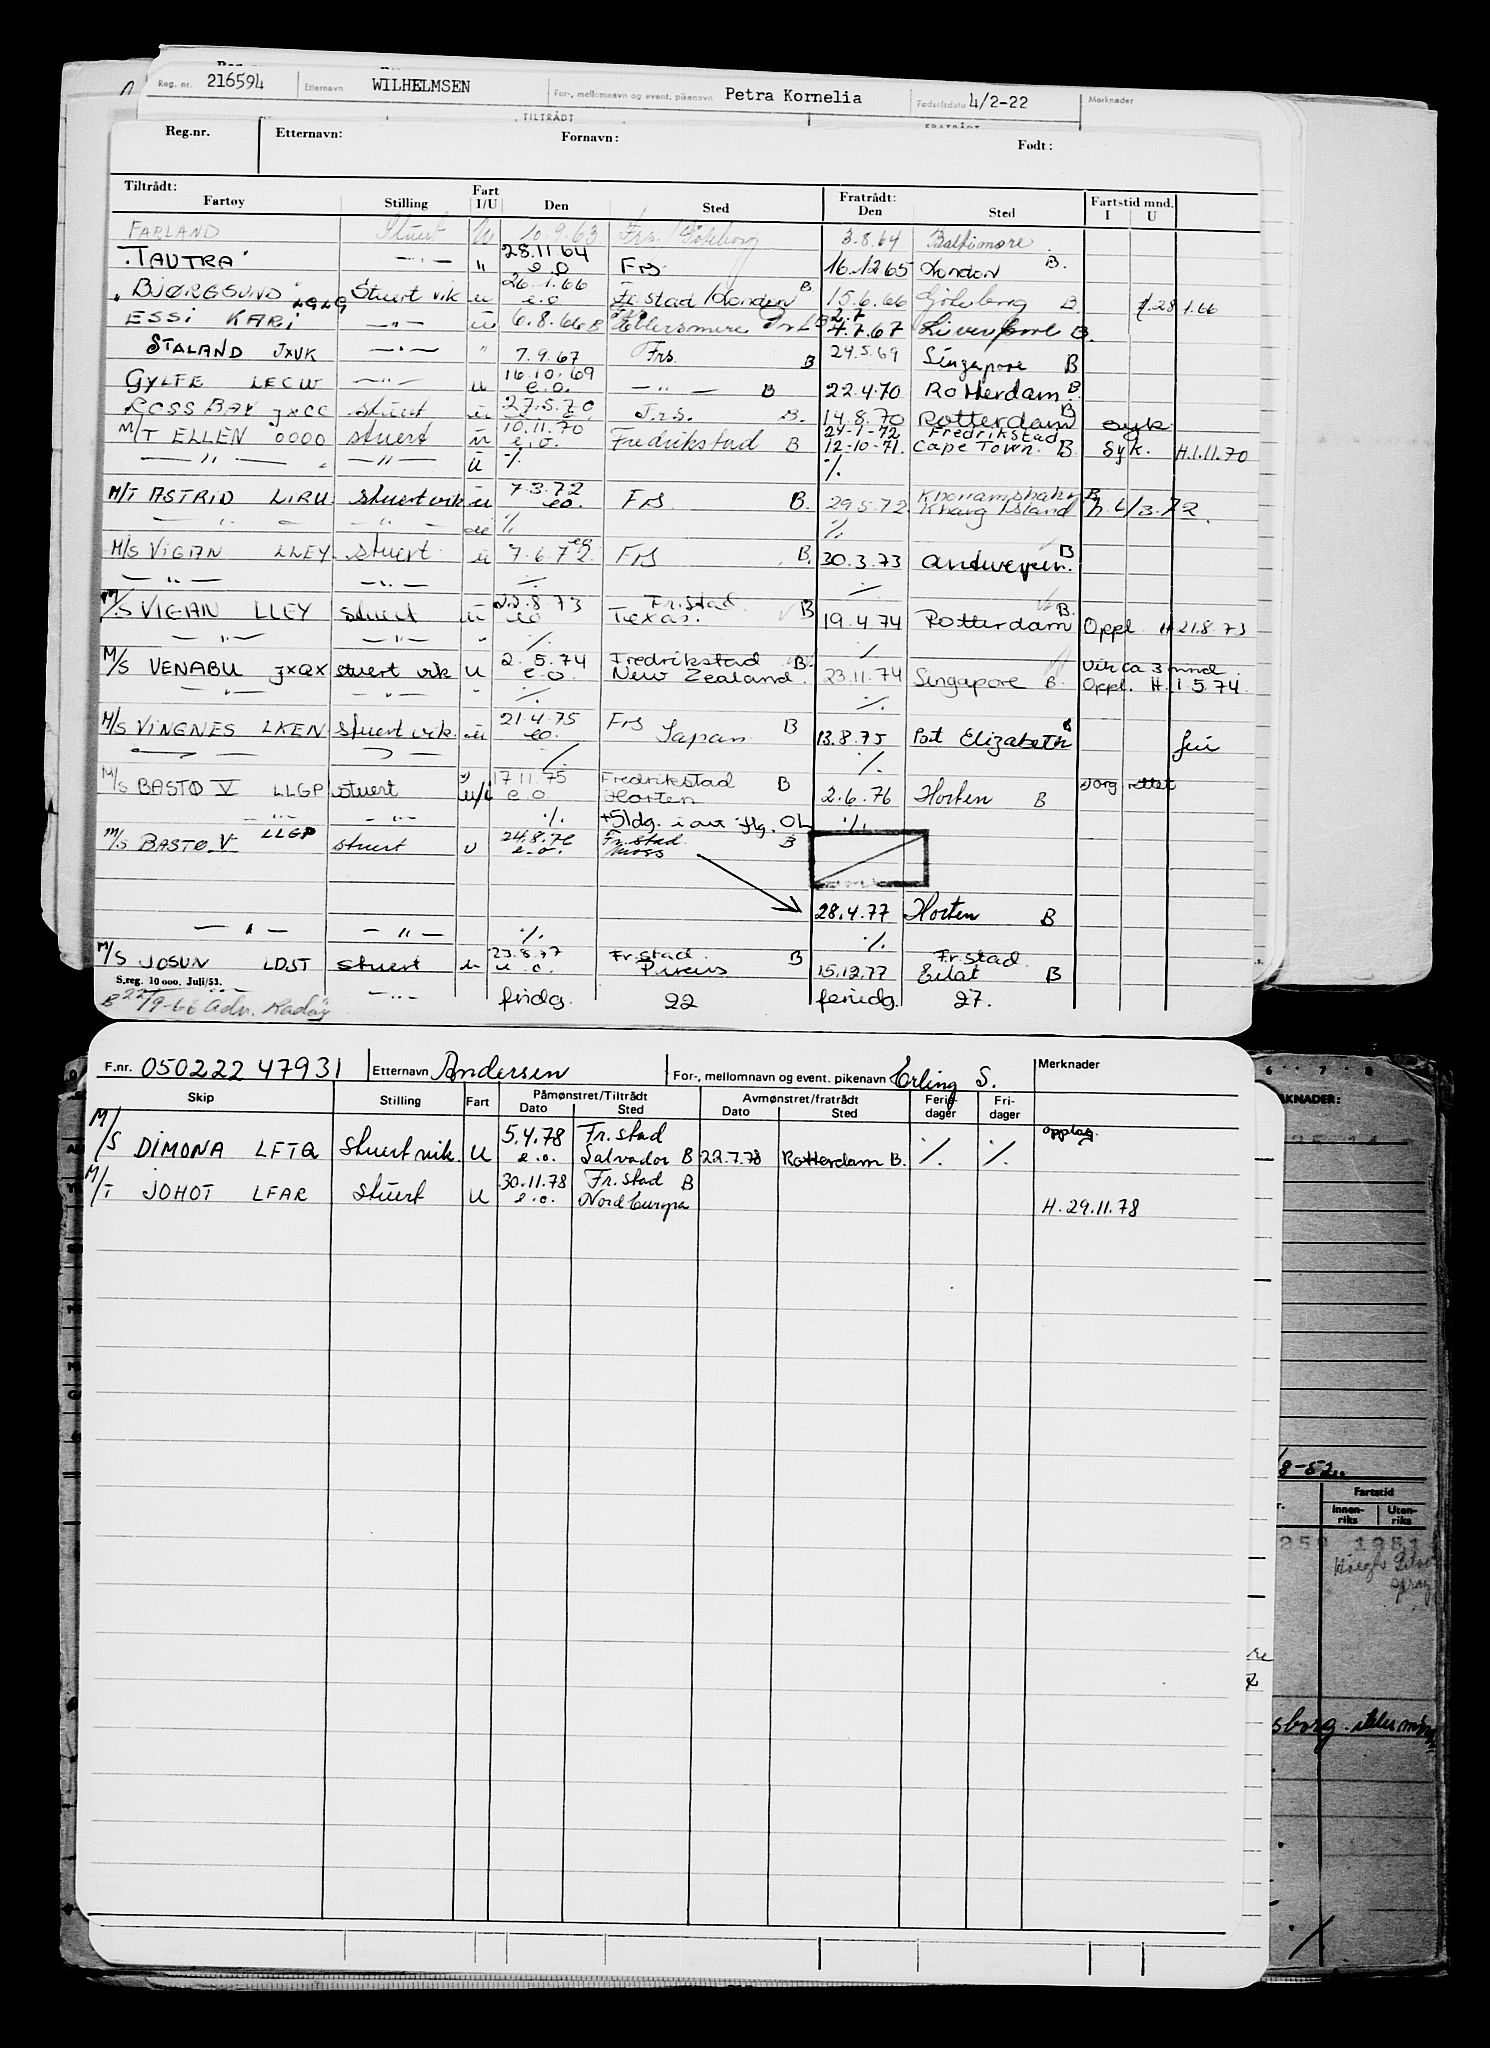 Reg. nr. 216594 Etternavn WILHELMSEN For-, mellomnavn og event. pikenavn Petra Kornelia Fødselsdato 4/2-22 Merknader
TILTRÅDT
Reg.nr. Etternavn: Fornavn: Født:
Tiltrådt: Fart Fratrådt: Fartstid mnd.
Fartøy Stilling I/U Den Sted Den Sted I U
FARLAND Stuert U 10.9.63 Frs. / Göteborg 3.8.64 Baltimore
28.11 64
"TAUTRA" —"— " e o Frs. 16.12 65 London B.
26.1.66 B
"BJØRGSUND" LGLG Stuert vik u e.o Fr.stad / London 15.6.66 Göteborg B 28 1.66
2.7
ESSI KARI —"— u 6.8.66 B Ellersmere Port B 4.7.67 Liverpool B.
STALAND JXVK —"— " 7.9.67 Frs. B 24.5.69 Singapore B
16.10.69
GYLFE LECW —"— u e.o. —"— B 22.4.70 Rotterdam B
27.5.70
ROSS BAY JXCC stuert u Frs. B. 14.8.70 Rotterdam B syk
10.11.70 24-1-72 Fredrikstad
M/T ELLEN OOOO stuert u e.o. Fredrikstad B 12-10-71. Cape Town. B Syk. H.1.11.70
—"— —"— u ·/. ·/.
7.3.72 B
M/T ASTRID LIRU stuert vik u eo. Frs B. 29.5.72. Kharg Island
—"— —"— ·/. ·/.
M/S VIGAN LLEY stuert u 7.6.72. eo Frs B. 30.3.73 Antwerpen. B
—"— —"— ·/. ·/.
22.8.73 Fr.stad B.
M/S VIGAN LLEY stuert u eo Texas. B 19.4.74 Rotterdam Oppl. H 21.8.73
—"— —"— " ·/. ·/.
2.5.74 Fredrikstad B. Vik ca 3 mnd.
M/S VENABU JXQX stuert vik u e.o. New Zealand. 23.11.74 Singapore B. Oppl. H. 1.5.74.
—"— —"— " ·/. ·/.
21.4.75
M/S VINGNES LKEN stuert vik. u eo. Frs Japan B 13.8.75 Port Elizabeth B
·/. ·/.
17.11.75 Fredrikstad
M/S BASTØ V LLGP stuert u/i e.o Horten B 2.6.76 Horten B
—"— —"— ·/. ·/.
24.8.76 Fr.stad
M/S BASTØ V LLGP stuert u e.o. Moss B
28.4.77 Horten B
—"— —"— ·/. ·/.
23.8.77 Fr.stad Fr.stad
M/S JOSUN LDST stuert u u.o. Pireus B 15.12.77 Eilat B
S.reg. 10 000. Juli/53. —"— fridg. 22 feriedg. 27.
B 22/9-66 Adr. Radøy
F.nr. 050222 47931 Etternavn Andersen For-, mellomnavn og event. pikenavn Erling S. Merknader
Skip Stilling Fart Påmønstret/Tiltrådt Avmønstret/fratrådt Ferie- Fri-
Dato Sted Dato Sted dager dager
5.4.78 Fr.stad opplag.
M/S DIMONA LFTQ Stuert vik. U e.o. Salvador B 22.7.78 Rotterdam B. ·/. ·/.
30.11.78 Fr.stad B
M/T JOHOT LFAR Stuert U e.o. Nord Europa H. 29.11.78
6 7 8
KNADER:
/8-52.
Fartstid
Innen- Uten-
riks riks
sborg